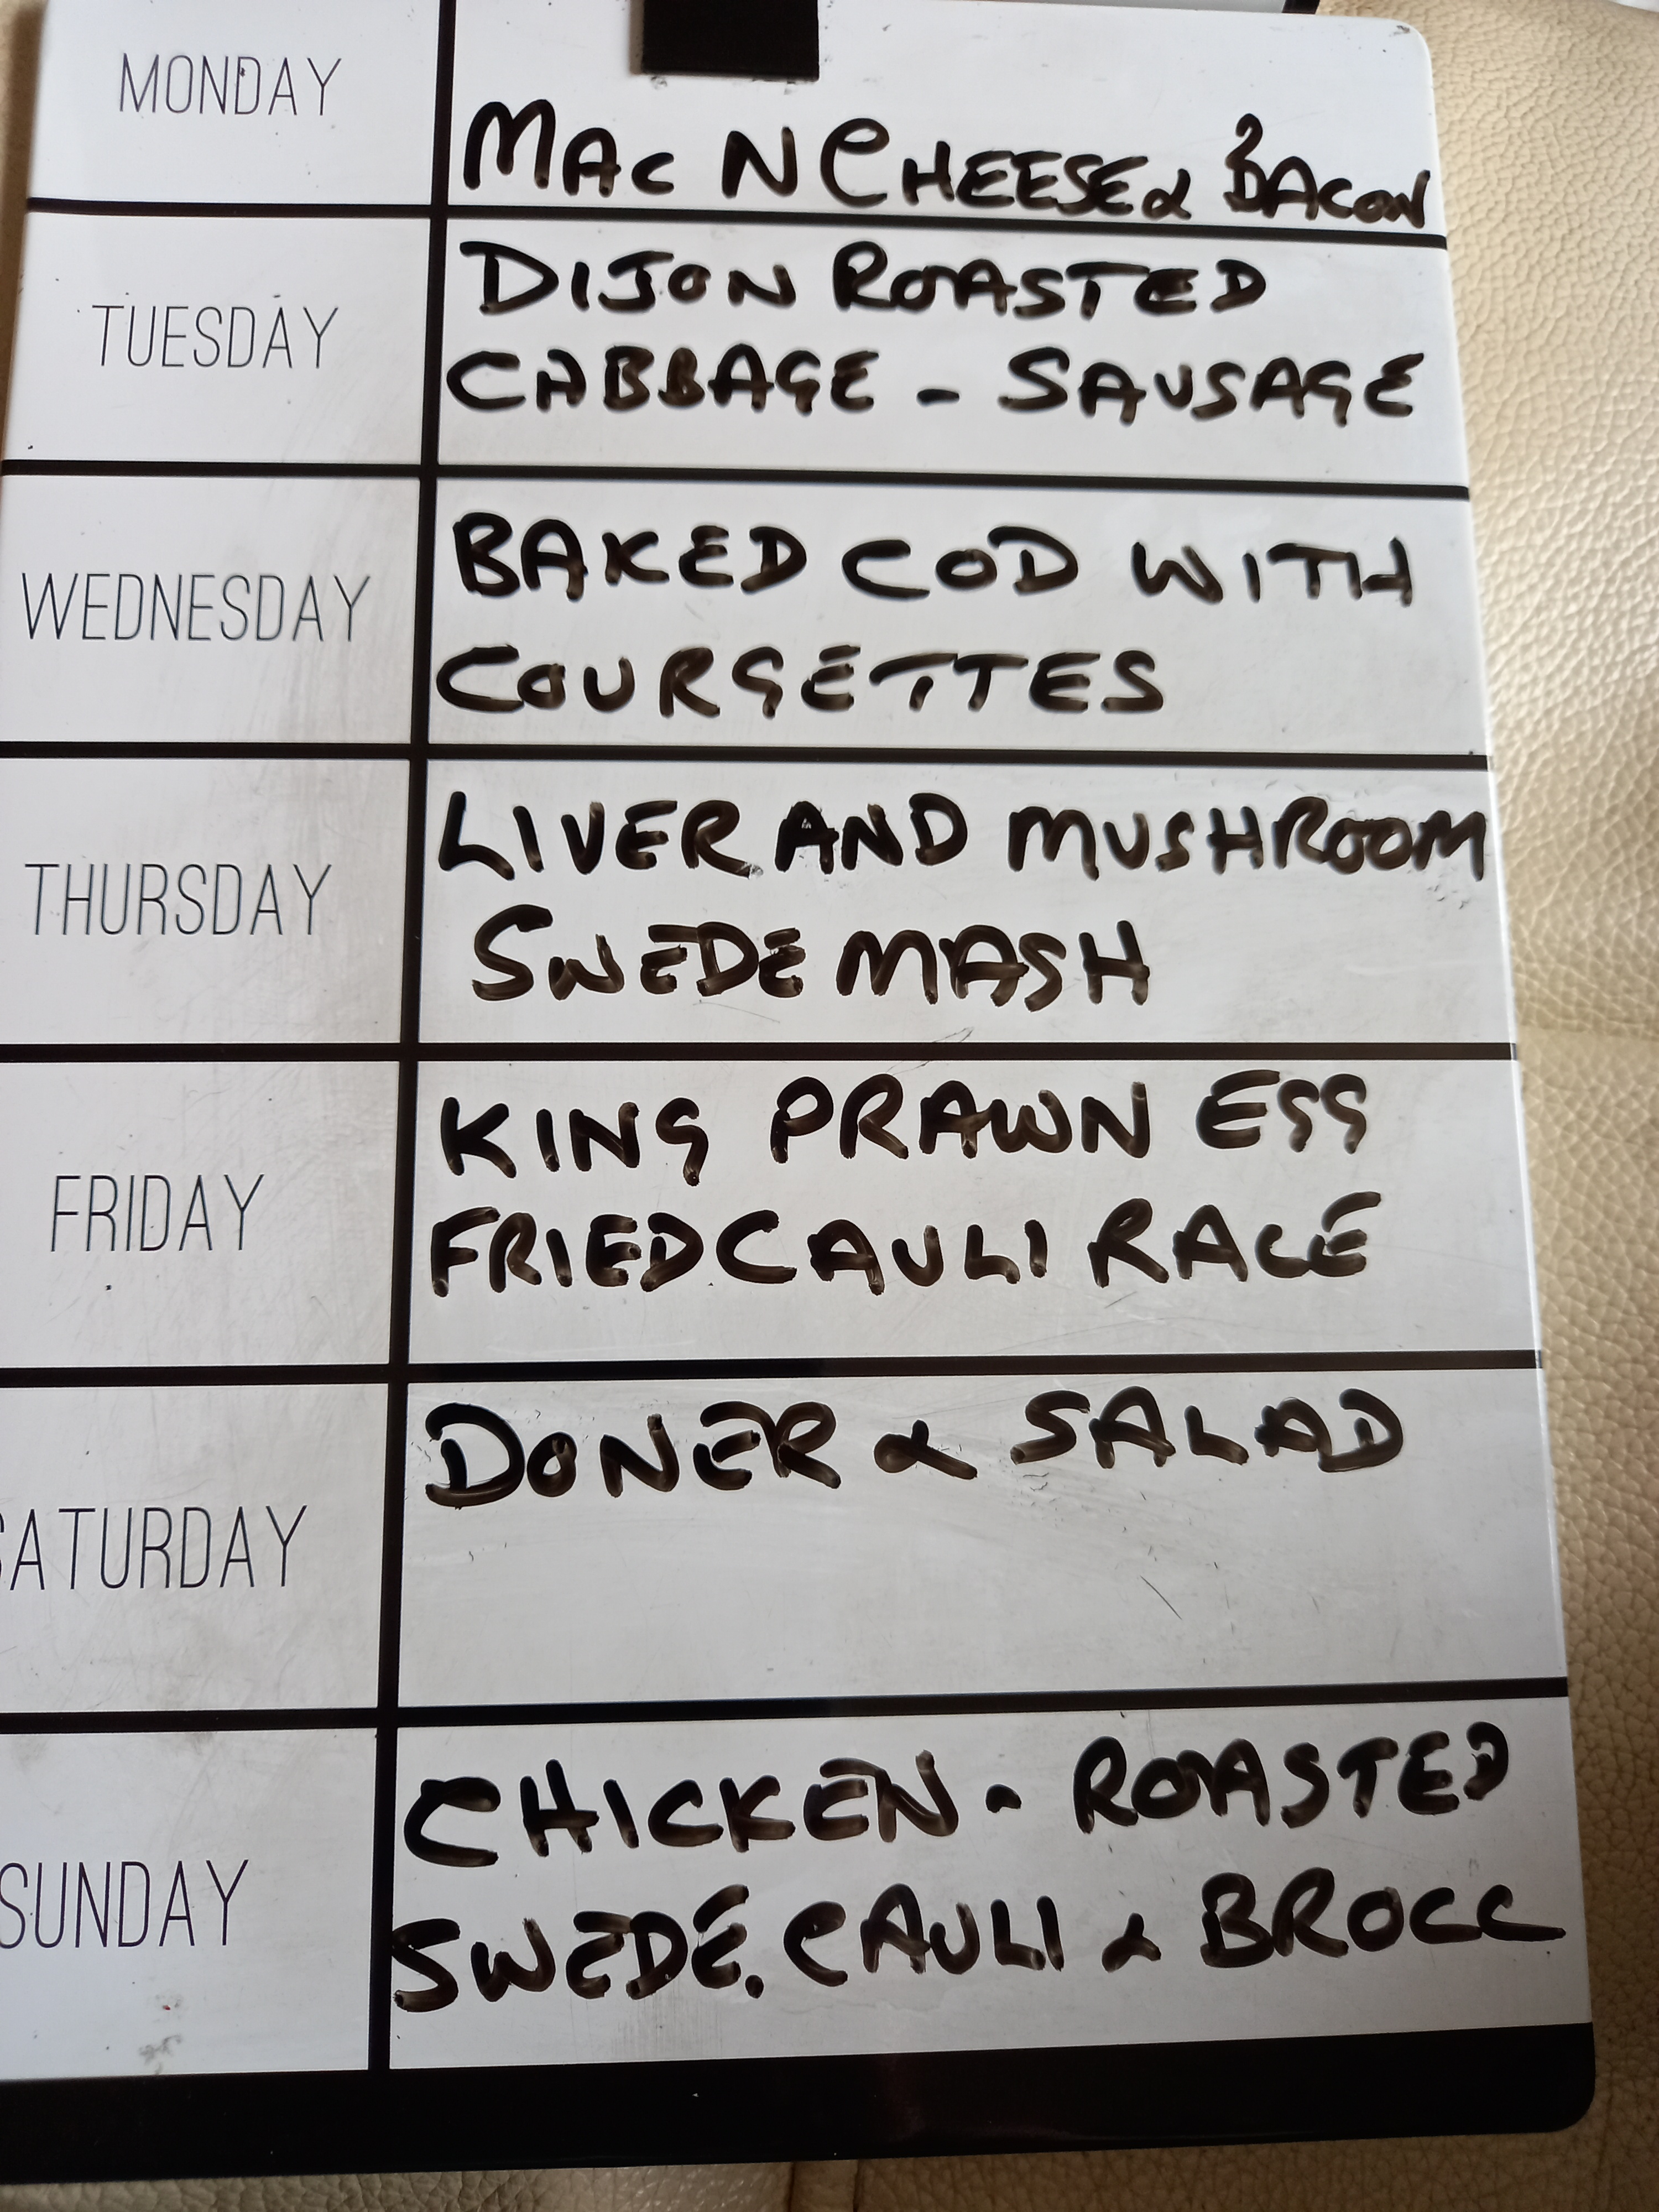 MONDAY
MAC N CHEESE & BACON
TUESDAY
DIJON ROASTED
CABBAGE - SAUSAGE
WEDNESDAY
BAKED COD WITH
COURGETTES
THURSDAY
LIVER AND MUSHROOM
SWEDE MASH
FRIDAY
KING PRAWN EGG
FRIED CAULI RACE
SATURDAY
DONER & SALAD
SUNDAY
CHICKEN - ROASTED
SWEDE. CAULI & BROCC